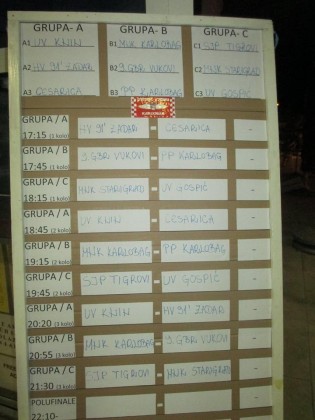 GRUPA- A GRUPA- B GRUPA- C
A1 UV KNIN B1 MNK KARLOBAG C1 SJP TIGROVI
A2 HV 91' ZADAR B2 9.GBR VUKOVI C2 MNK STARIGRAD
A3 CESARICA B3 PP KARLOBAG C3 UV GOSPIĆ
GRUPA / A HV 91' ZADAR - CESARICA -
17:15 (1 kolo)
GRUPA / B 9.GBR VUKOVI - PP KARLOBAG -
17:45 (1 kolo)
GRUPA / C MNK STARIGRAD - UV GOSPIĆ -
18:15 (1 kolo)
GRUPA / A UV KNIN - CESARICA -
18:45 (2 kolo)
GRUPA / B MNK KARLOBAG - PP KARLOBAG -
19:15 (2 kolo)
GRUPA / C SJP TIGROVI - UV GOSPIĆ -
19:45 (2 kolo)
GRUPA / A UV KNIN - HV 91' ZADAR -
20:20 (3 kolo)
GRUPA / B MNK KARLOBAG - 9.GBR VUKOVI -
20:55 (3 kolo)
GRUPA / C SJP TIGROVI - MNK STARIGRAD -
21:30 (3 kolo)
POLUFINALE - -
22:10-